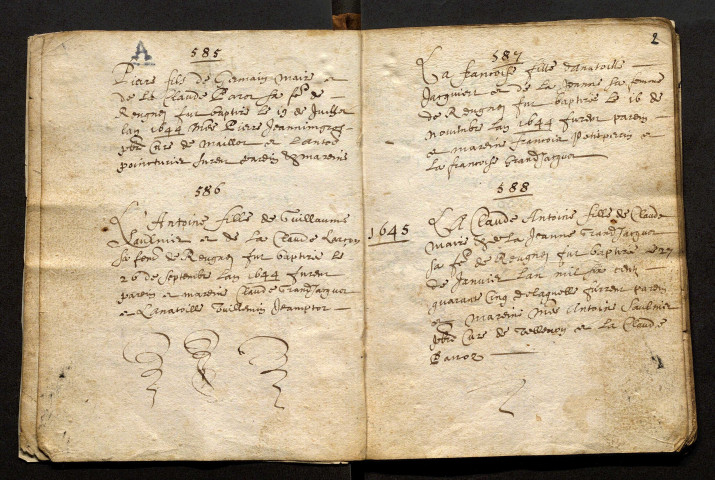 A
585
Piere fils de Germain Maire et
de La Claude Parot sa fe de
Reugney fut baptize le 19 de Juillet
lan 1644 Mre Piere Jeannin
pbre Cure de Maillot et Lantoe
poincturier furent parein & mareine
586
L Antoine fille de Guillaume
Saulnier et de La Claude
sa feme de Reugney fut baptize le
26 de Septembre lan 1644 furent
parein et mareine Claude Grand Jacquet
et Lanatoille Vuillemin Jeamptot
2
587
La francoise fille danatoille
Jacquier et de La Jeanne sa femme
de Reugney fut baptize le 16 de
Novembre lan 1644 furent parein
et mareine francois Petitperin et
La francoise Grand Jacquet
588
1645
La Claude Antoine fille de Claude
Maire & de La Jeanne Grand Jacquet
sa fe de Reugney fut baptize le 27
de Janvier Lan mil six centz
quarante Cinq de laquelle furent parein
et Mareine Mre Antoine Saulnier
pbre Cure de et La Claude
Parot